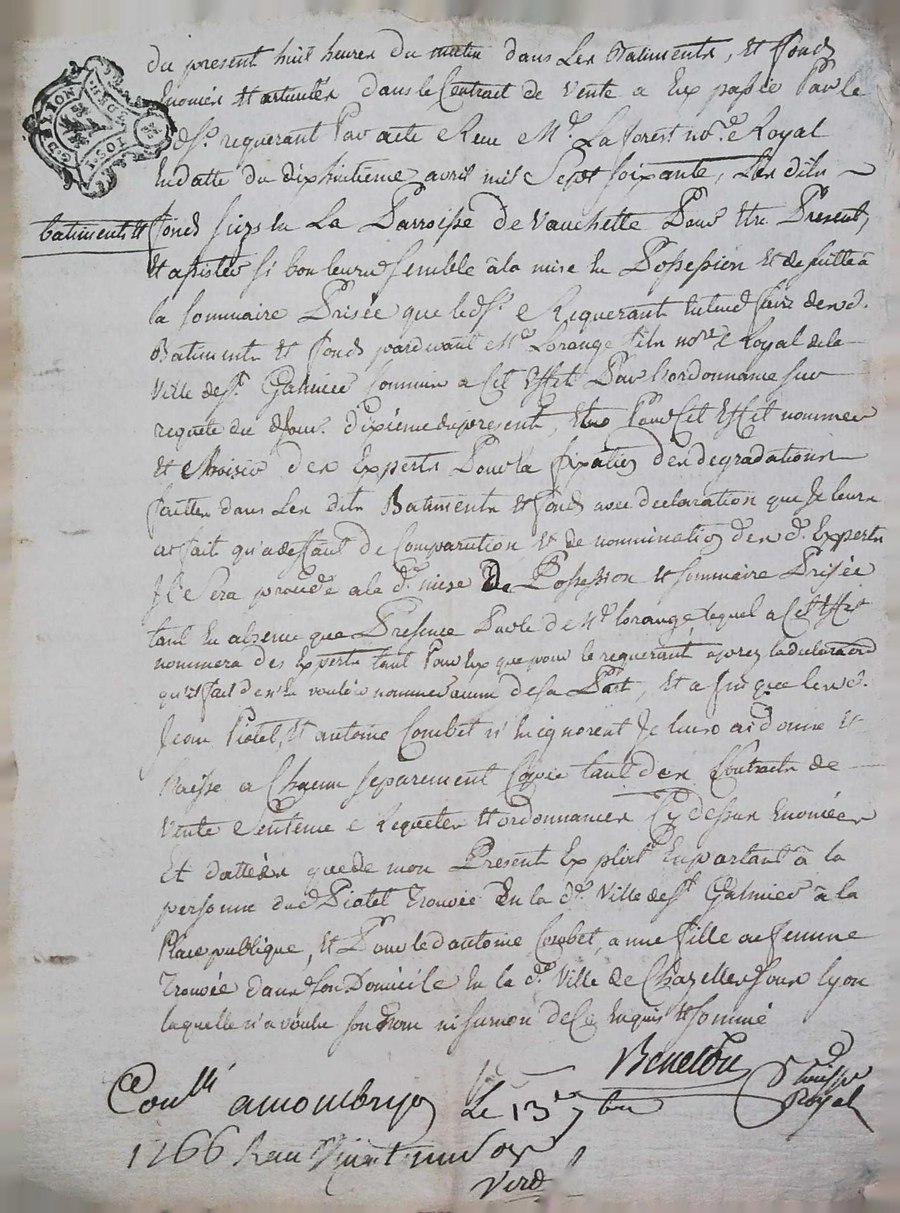 du present huit heures du matin dans Les Batiments, Et fonds
Enoncés Et articulés dans le Contrat de Vente a Eux passée Par le
dSr. requerant Par acte Reçu Me. Laforest nore. Royal
En datte du dixhuitieme avril mil Sept soixante, Les dits
batiments Et
fonds sizs En La Parroisse de Vauchette Pour Etre Presents
Et assister si bon leur semble à la mise En Possession Et de suitte à
la sommaire Prisée que ledSr. Requerant Entend faire desd.
Batiments Et fonds pardevant Me. Lorange fils nore. Royal de la
Ville de St. Galmier Commis a Cet Effet Par l'ordonnance sur
requete du Jour dixiéme du present, Et Pour Cet Effet nommer
Et Choisir des Experts Pour la fixation des degradations
faittes dans Les dits Batiments Et fonds avec declaration que Je leurs
ai fait qu'a deffaut de Comparution Et de nomination desd. Experts
Il Sera procédé a la de. mise De Possession Et sommaire Prisée
tant En absence que Presence Par le d. Me. Lorange lequel a Cet Effet
nommera des Experts tant Pour Eux que pour le requerant apres la declaraon
qu'il fait d'en Vouloir nommer aucun de sa Part, Et afin que lesd.
Jean Piotet, Et antoine Combet n'En ignorent Je leurs ai donné Et
Laissé a Chacun separement Copie tant des Contracts de
Vente Sentence Requetes Et ordonnances Cy dessus Enoncées
Et dattées que de mon Present Exploit En parlant à la
personne dud Piotet trouvée En la de. Ville de St. Galmier à la
Place publique, Et Pour led antoine Combet, a une fille ou femme
Trouvée dans son Domicile En la de. Ville de Chazelles sur lyon
laquelle n'a voulu son nom ni surnom de Ce Enquis Et sommé
Benetton
huissier
Royal
Conllé a montbrison Le 13e 7bre
1766 Reçu